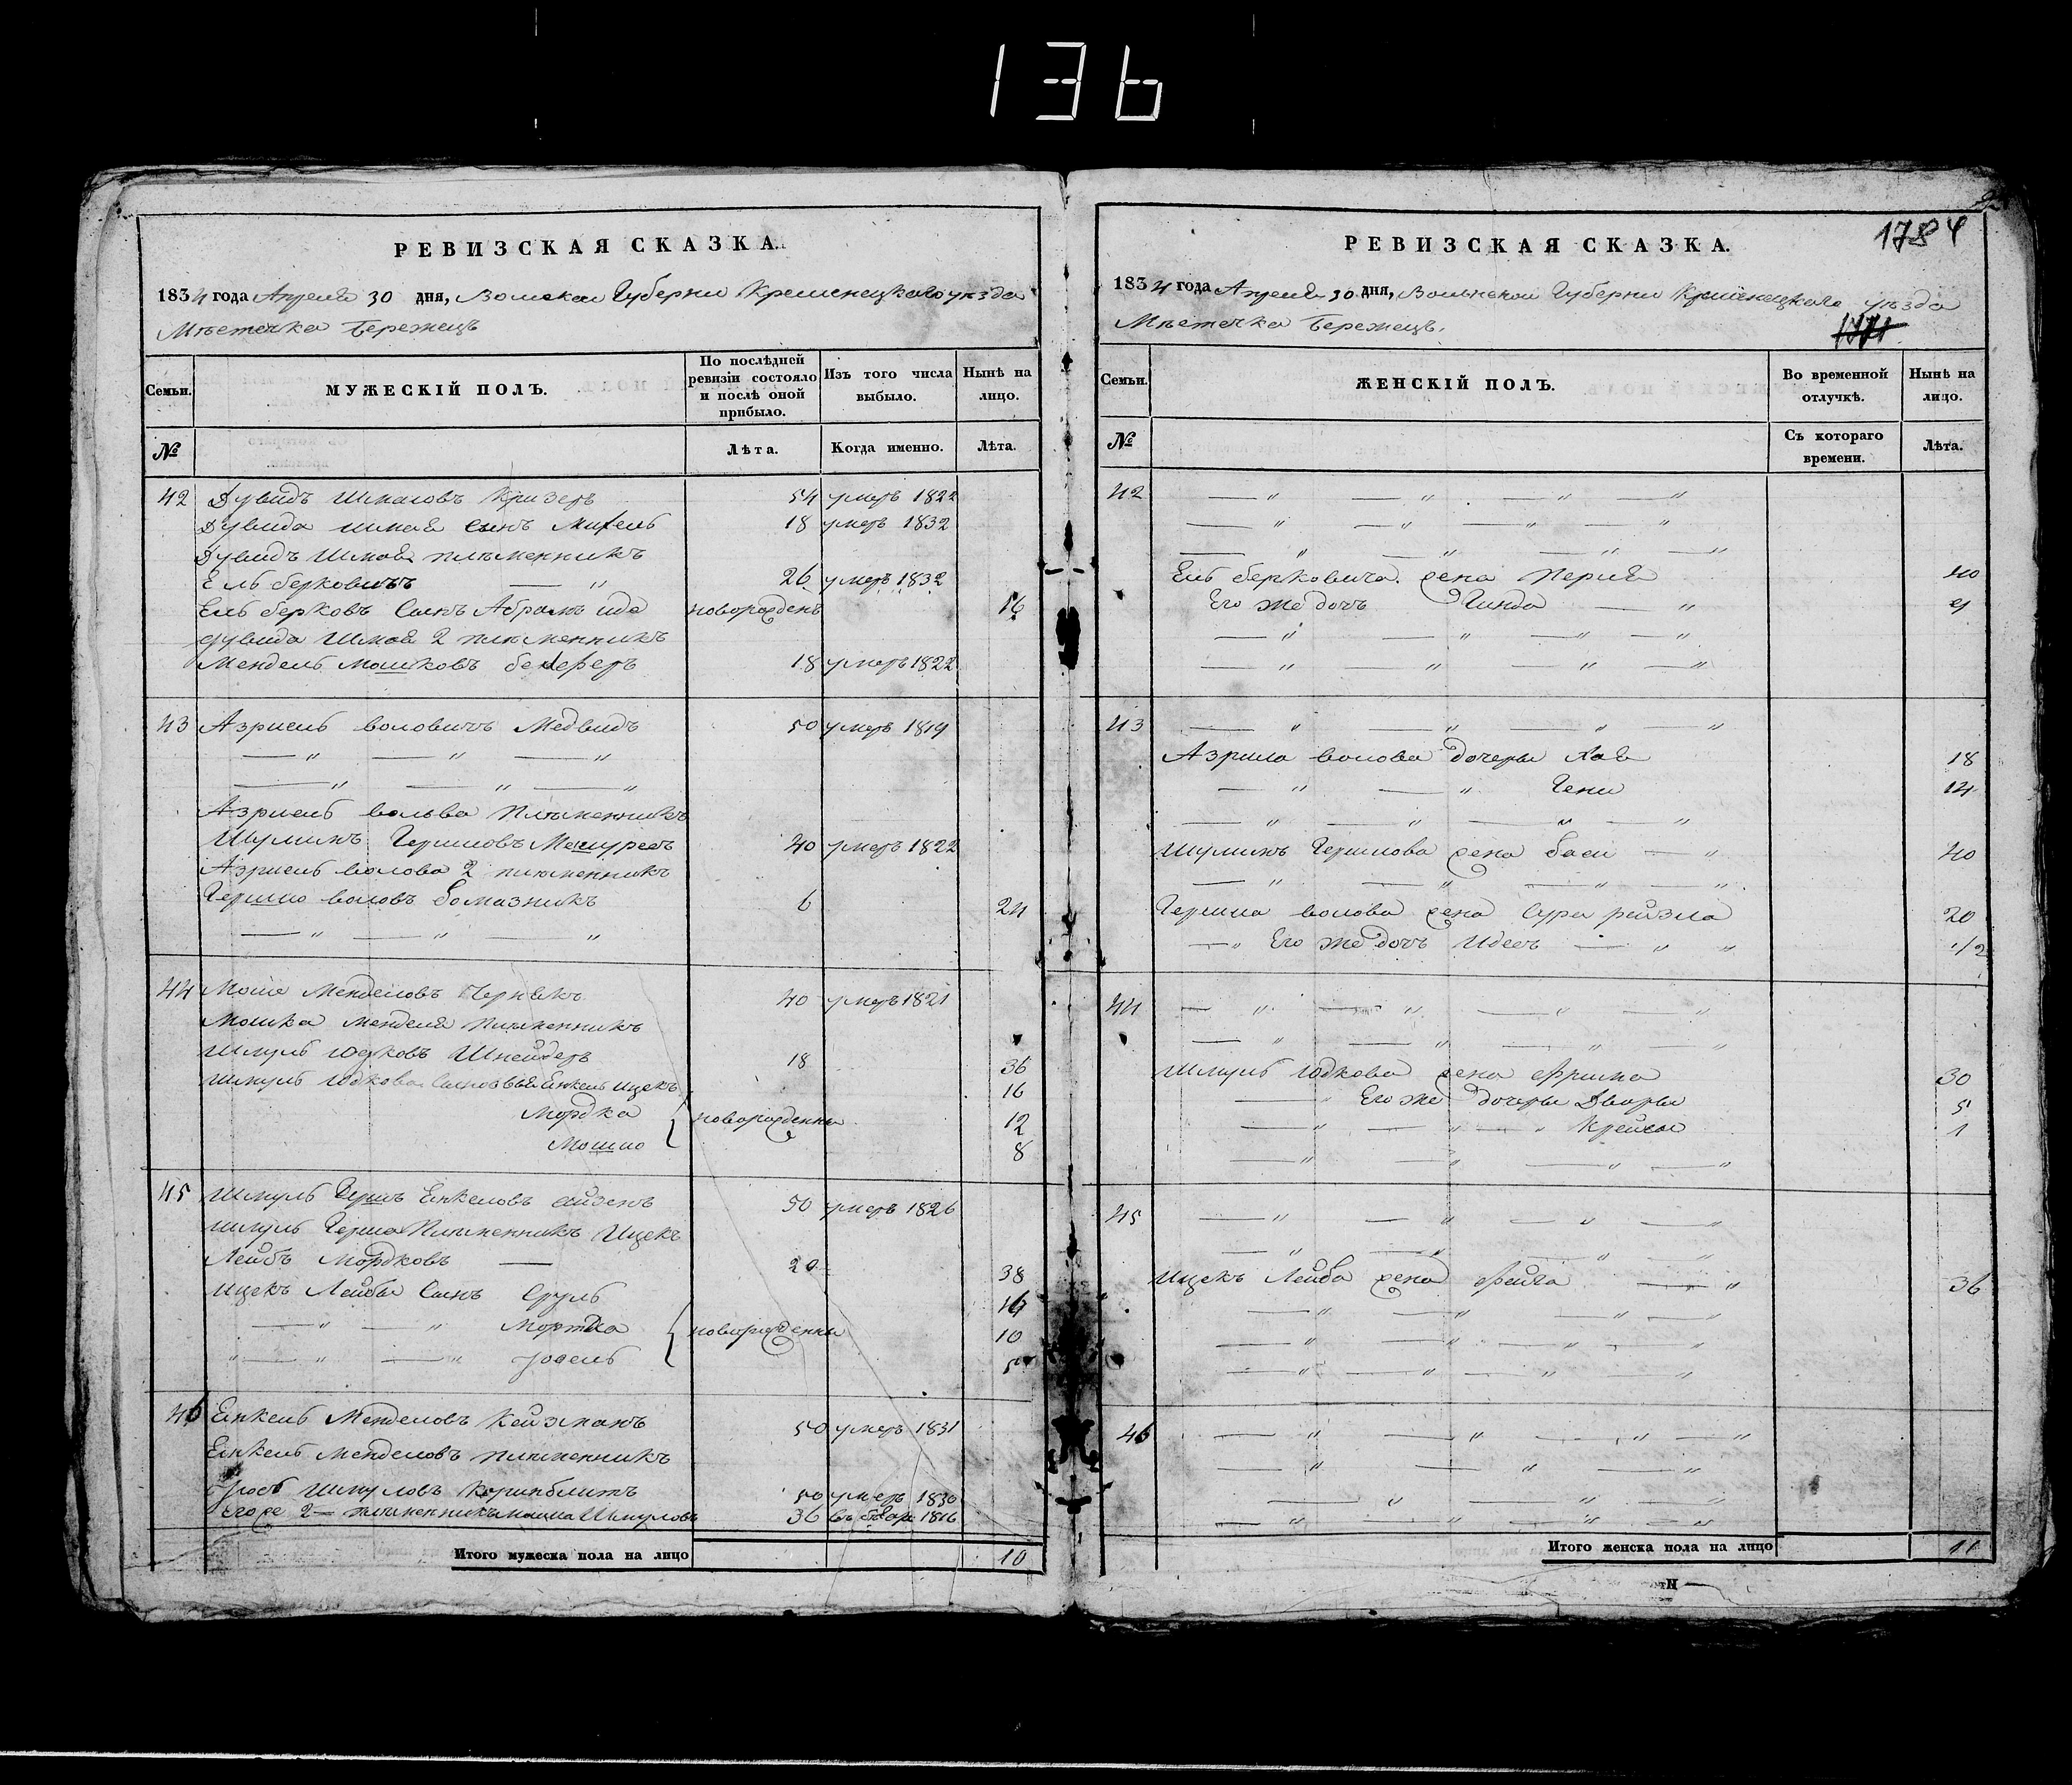 136
РЕВИЗСКАЯ СКАЗКА.
1834 года Апреля 30 дня, Волиской Губерни Кременецкаго уѣзда
Мѣстечка Бережецъ
Семьи.
МУЖЕСКІЙ ПОЛЪ.
По послѣдней ревизіи состояло и послѣ оной прибыло.
Изъ того числа выбыло.
Нынѣ на лицо.
№
Лѣта.
Когда именно.
Лѣта.
42 Дувидъ Шмаовъ Кризеръ 54 умеръ 1822
Дувида Шмая сынъ Михель 18 умеръ 1832
Дувидъ Шмоя племенникъ
Ель берковичъ — " 26 умеръ 1832
Ель берковъ Сынъ Абрамъ иде новорожденъ 16
Дувида Шмая 2 племенникъ
Мендель Мошковъ 18 умеръ 1822
43 Азриель воловичъ Медвидъ 50 умеръ 1819
— " — " — "
— " — " — "
Азриель вольва Племенникъ
Шулимъ Гершовъ Мешуресъ 40 умеръ 1822
Азриель волова 2 племенникъ
Гершко воловъ Бомазникъ 6 24
— " — " — "
44 Моше Менделовъ Чернякъ 40 умеръ 1821
Мошка Менделя Племенникъ
Шмуль Юдковъ Шнейдеръ 18 36
Шмуль Юдкова Сыновья Енкель Ицекъ 16
Мордка новорожденны 12
Мошко 8
45 Шмуль Гершъ Енкеловъ айзенъ 50 умеръ 1826
Шмуль Герша Племенникъ Ицекъ
Лейбъ Мордковъ — 20 38
Ицекъ Лейбы Сынъ Сруль 16
— " — " Мортка новорожденны 10
" — " — " Іосель 5
46 Енкель Менделовъ Кейзманъ 50 умеръ 1831
Енкель Менделовъ племенникъ
Іось Шмуловъ Коринблитъ 50 умеръ 1830
его же 2 — племенникъ мошка Шмуловъ 36 1816
Итого мужеска пола на лицо 10
РЕВИЗСКАЯ СКАЗКА.
1784
1834 года Апреля 30 дня, Волынской Губерни Кременецкаго уѣзда
Мѣстечка Бережецъ.
Семьи.
ЖЕНСКІЙ ПОЛЪ.
Во временной отлучкѣ.
Нынѣ на лицо.
№
Съ котораго времени.
Лѣта.
42 — " — " — " — "
— " — " — " — "
— " — " — " — "
Ель берковича жена Перля 40
Его же дочь Гинда — " 9
— " — " — " — "
— " — " — " — "
43 — " — " — " — "
Азрила волова дочеры Хая 18
— " — " Гени 14
— " — " — " — "
Шулимъ Гершова жена баси — " 40
— " — " — " — "
Гершка волова жена Сура рейзла 20
— " Его же дочь Идесъ — " " 1/2
44 — " — " — " — "
— " — " — " — "
Шмуль Юдкова жена Фрима 30
— " Его же дочеры Дворы 5
— " — " — " Крейсы 1
— " — " — " — "
45 — " — " — " — "
— " — " — " — "
Ицекъ Лейба жена Фейга — " 36
— " — " — " — "
— " — " — " — "
— " — " — " — "
46 — " — " — " — "
— " — " — "
— " — " — "
— " — " — " — "
Итого женска пола на лицо 11